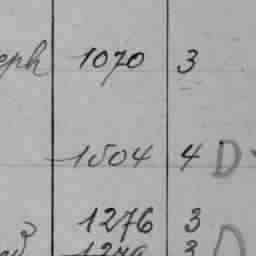 eph 1070 3
1504 4 D
1276 3
3